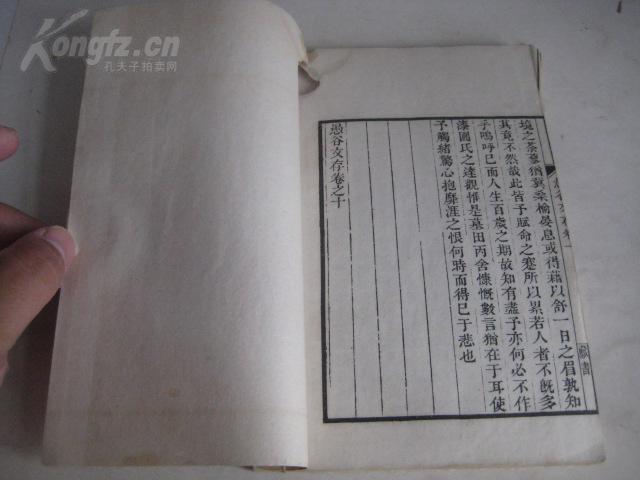 Kongfz.cn
孔夫子拍卖网
境之荼蓼猶冀桑榆晏息或得藉以舒一日之眉孰知
其竟不然哉此皆予賦命之蹇所以累若人者不旣多
乎嗚呼已而人生百歲之期故知有盡予亦何必不作
漆園氏之達觀惟是墓田丙舍慷慨數言猶在于耳使
予觸緒驚心抱靡涯之恨何時而得已于悲也
愚谷文存卷之十